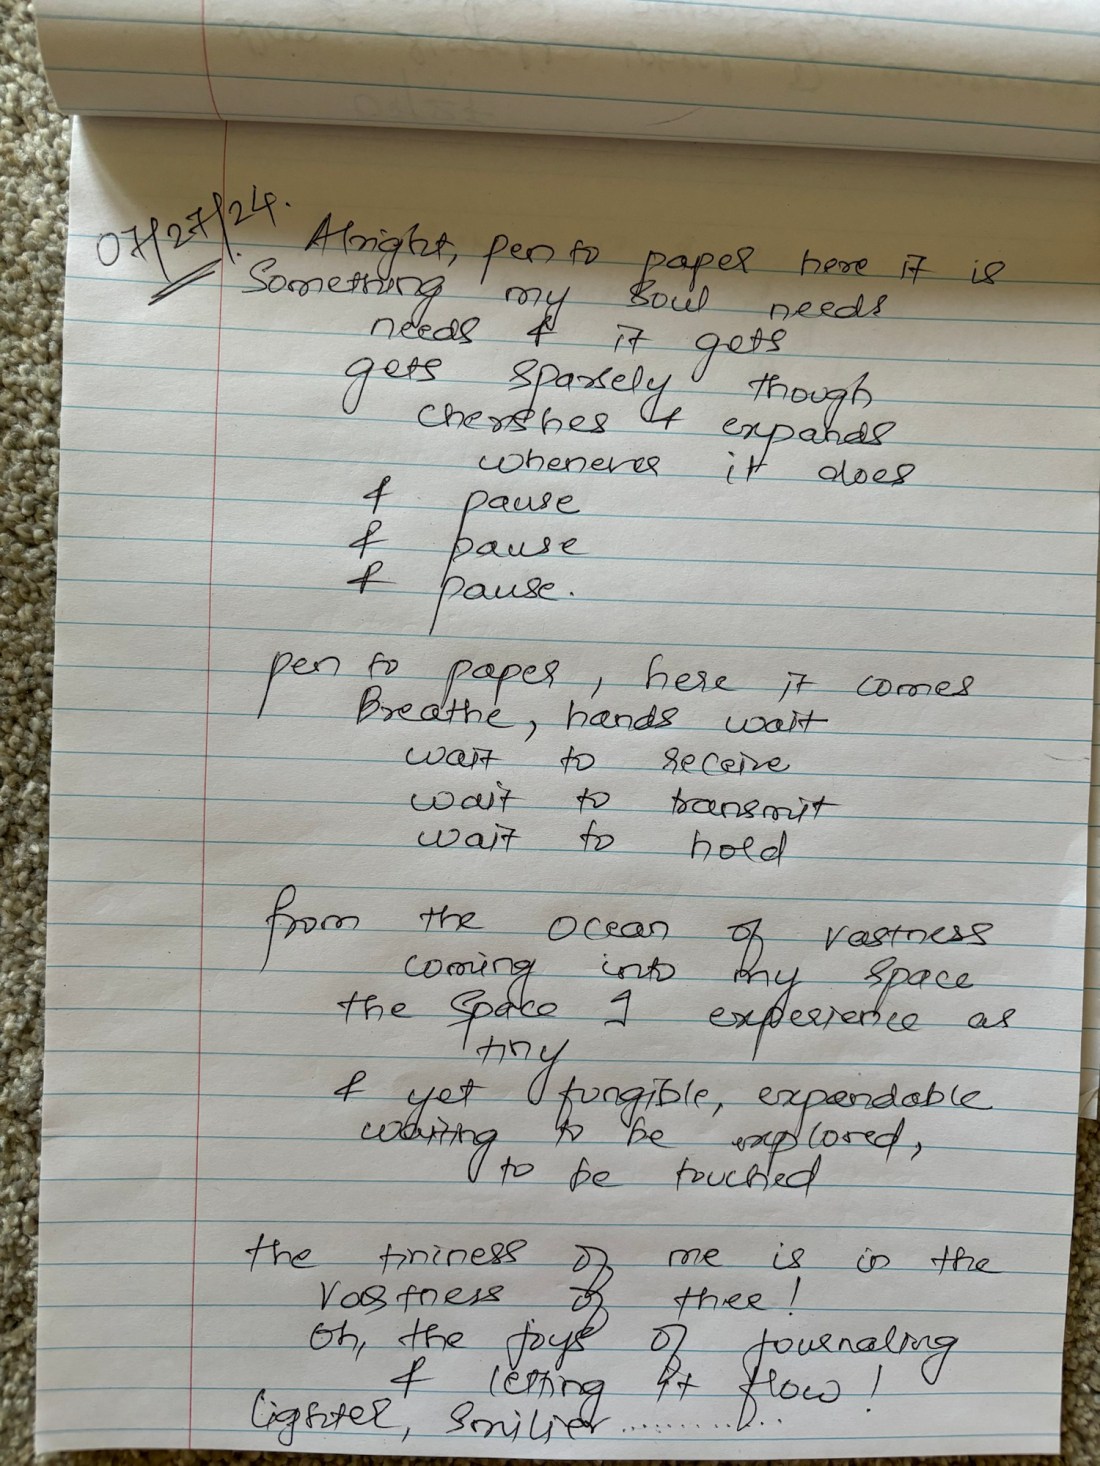 07/27/24. Alright, pen to paper here it is
Something my soul needs
needs & it gets
gets sparsely though
cherishes & expands
whenever it does
& pause
& pause
& pause.
pen to paper, here it comes
Breathe, hands wait
wait to receive
wait to transmit
wait to hold
from the ocean of vastness
coming into my space
the space I experience as
tiny
& yet fungible, expandable
waiting to be explored,
to be touched
the tininess of me is in the
vastness of thee!
Oh, the joys of journaling
& letting it flow!
lighter, smilier ..........